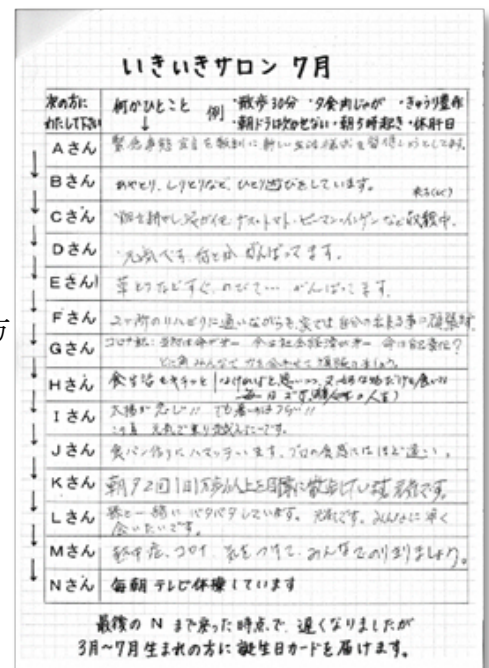 いきいきサロン 7月
次の方に わたして下さい
何かひとこと 例 ・散歩30分 ・夕食肉じゃが ・きゅうり豊作
↓ ・朝ドラは欠かせない ・朝5時起き ・休肝日
Aさん 緊急事態宣言を契機に新しい生活様式を習得しようとしてます。
Bさん あやとり、しりとりなど、ひとり遊びをしています。
Cさん 畑を耕やし、ジャガイモ、ナス、トマト、ピーマン、インゲンなど収穫中。
Dさん 元気です。何とか がんばってます。
Eさん 草とりなどすぐ、のびて… がんばってます。
Fさん 2ヶ所のリハビリに通いながらも、家では自分の出来る事に頑張ります
Gさん コロナ
みんなで 力を合わせて 頑張りましょう。
Hさん 食生活もキチッとしなければと思いつつ、
Iさん 太陽が恋しい!! でも暑いのはつらい!!
元気に乗り越えたいです。
Jさん 食パン作りにハマっています、プロの食感にはほど遠い。
Kさん 朝夕2回1日1万歩以上を目標に散歩しています 元気です。
Lさん 一緒に バタバタしています。元気です。みんなに早く
会いたいです。
Mさん 熱中症、コロナ、気をつけて、みんなでのりきりましょう。
Nさん 毎朝 テレビ体操しています
最後の N まで戻った時点で、遅くなりましたが
3月〜7月生まれの方に誕生日カードを届けます。